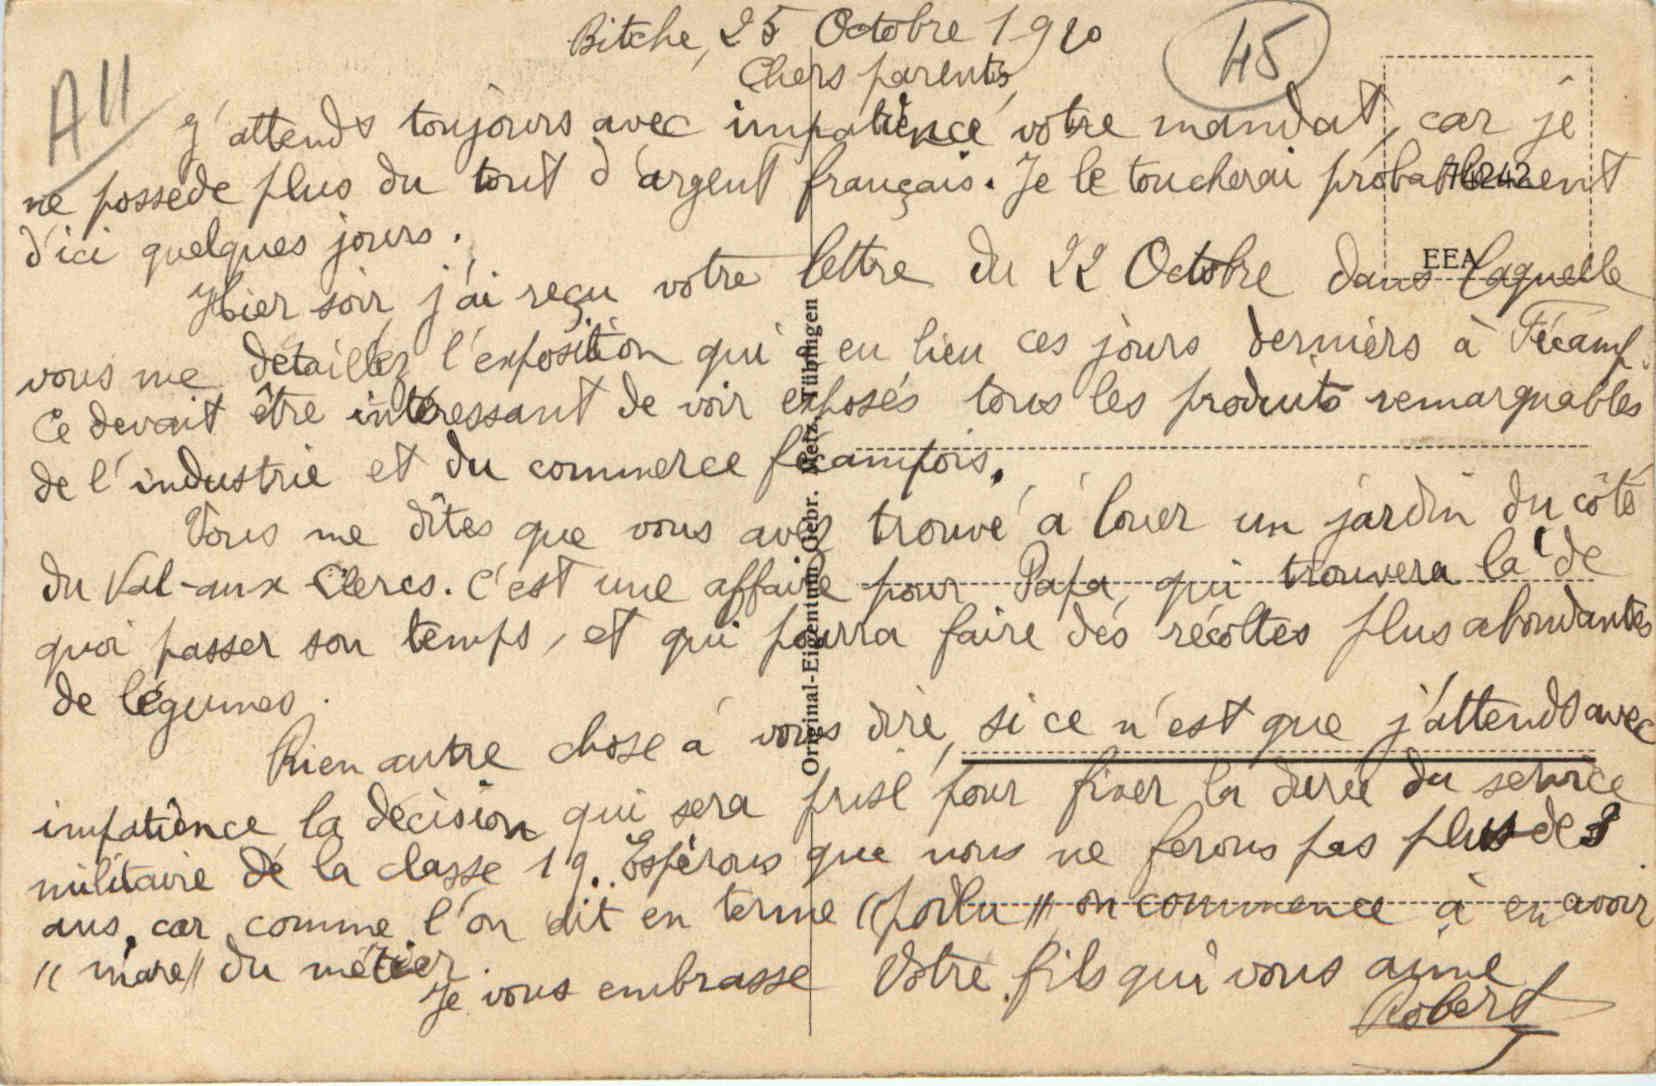 Bitche, 25 Octobre 1920
45
A11
Chers parents,
J'attends toujours avec impatience votre mandat, car je
ne possède plus du tout d'argent français. Je le toucherai probablement
74242
d'ici quelques jours.
EEA
Hier soir j'ai reçu votre lettre du 22 Octobre dans laquelle
vous me détaillez l'exposition qui a eu lieu ces jours derniers à Fécamp.
Ce devait être intéressant de voir exposés tous les produits remarquables
de l'industrie et du commerce fécampois.
Vous me dîtes que vous avez trouvé à louer un jardin du côté
du Val-aux Clercs. C'est une affaire pour Papa, qui trouvera là de
quoi passer son temps, et qui pourra faire des récoltes plus abondantes
de légumes.
Rien autre chose à vous dire, si ce n'est que j'attends avec
impatience la décision qui sera prise pour fixer la durée du service
militaire de la classe 19. Espérons que nous ne ferons pas plus de 3
ans, car comme l'on dit en terme "poilu" on commence à en avoir
"mare" du métier.
Je vous embrasse Votre fils qui vous aime
Robert
Original-Eigentum Gebr. Metz, Tübingen